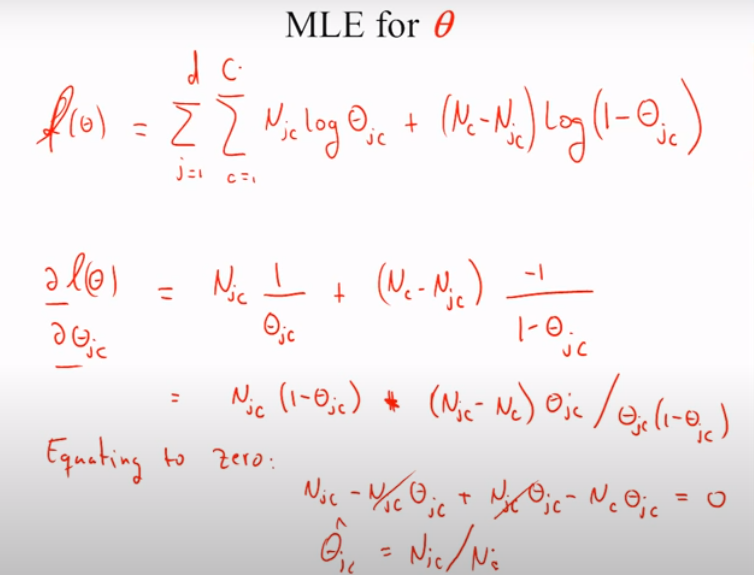 MLE for θ
ℓ(θ) = Σ_{j=1}^{d} Σ_{c=1}^{C} N_{jc} log θ_{jc} + (N_c - N_{jc}) log (1 - θ_{jc})
∂ℓ(θ)/∂θ_{jc} = N_{jc} 1/θ_{jc} + (N_c - N_{jc}) -1/(1 - θ_{jc})
= N_{jc} (1 - θ_{jc}) + (N_{jc} - N_c) θ_{jc} / θ_{jc} (1 - θ_{jc})
Equating to zero:
N_{jc} - N_{jc} θ_{jc} + N_{jc} θ_{jc} - N_c θ_{jc} = 0
θ̂_{jc} = N_{jc} / N_c